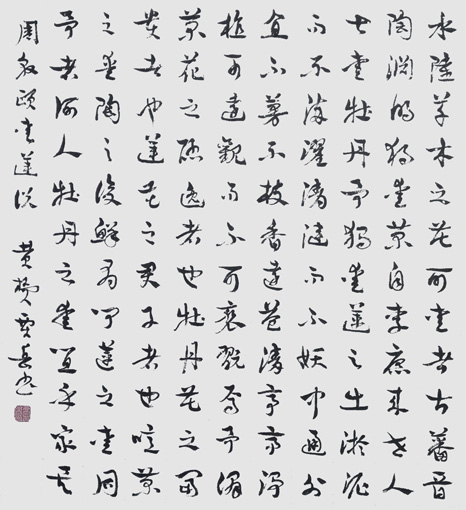 水陸草木之花可愛者甚蕃晉
陶淵明獨愛菊自李唐來世人
甚愛牡丹予獨愛蓮之出淤泥
而不染濯清漣而不妖中通外
直不蔓不枝香遠益清亭亭淨
植可遠觀而不可褻翫焉予謂
菊花之隱逸者也牡丹花之富
貴者也蓮花之君子者也噫菊
之愛陶之後鮮有聞蓮之愛同
予者何人牡丹之愛宜乎眾矣
周敦頤愛蓮說